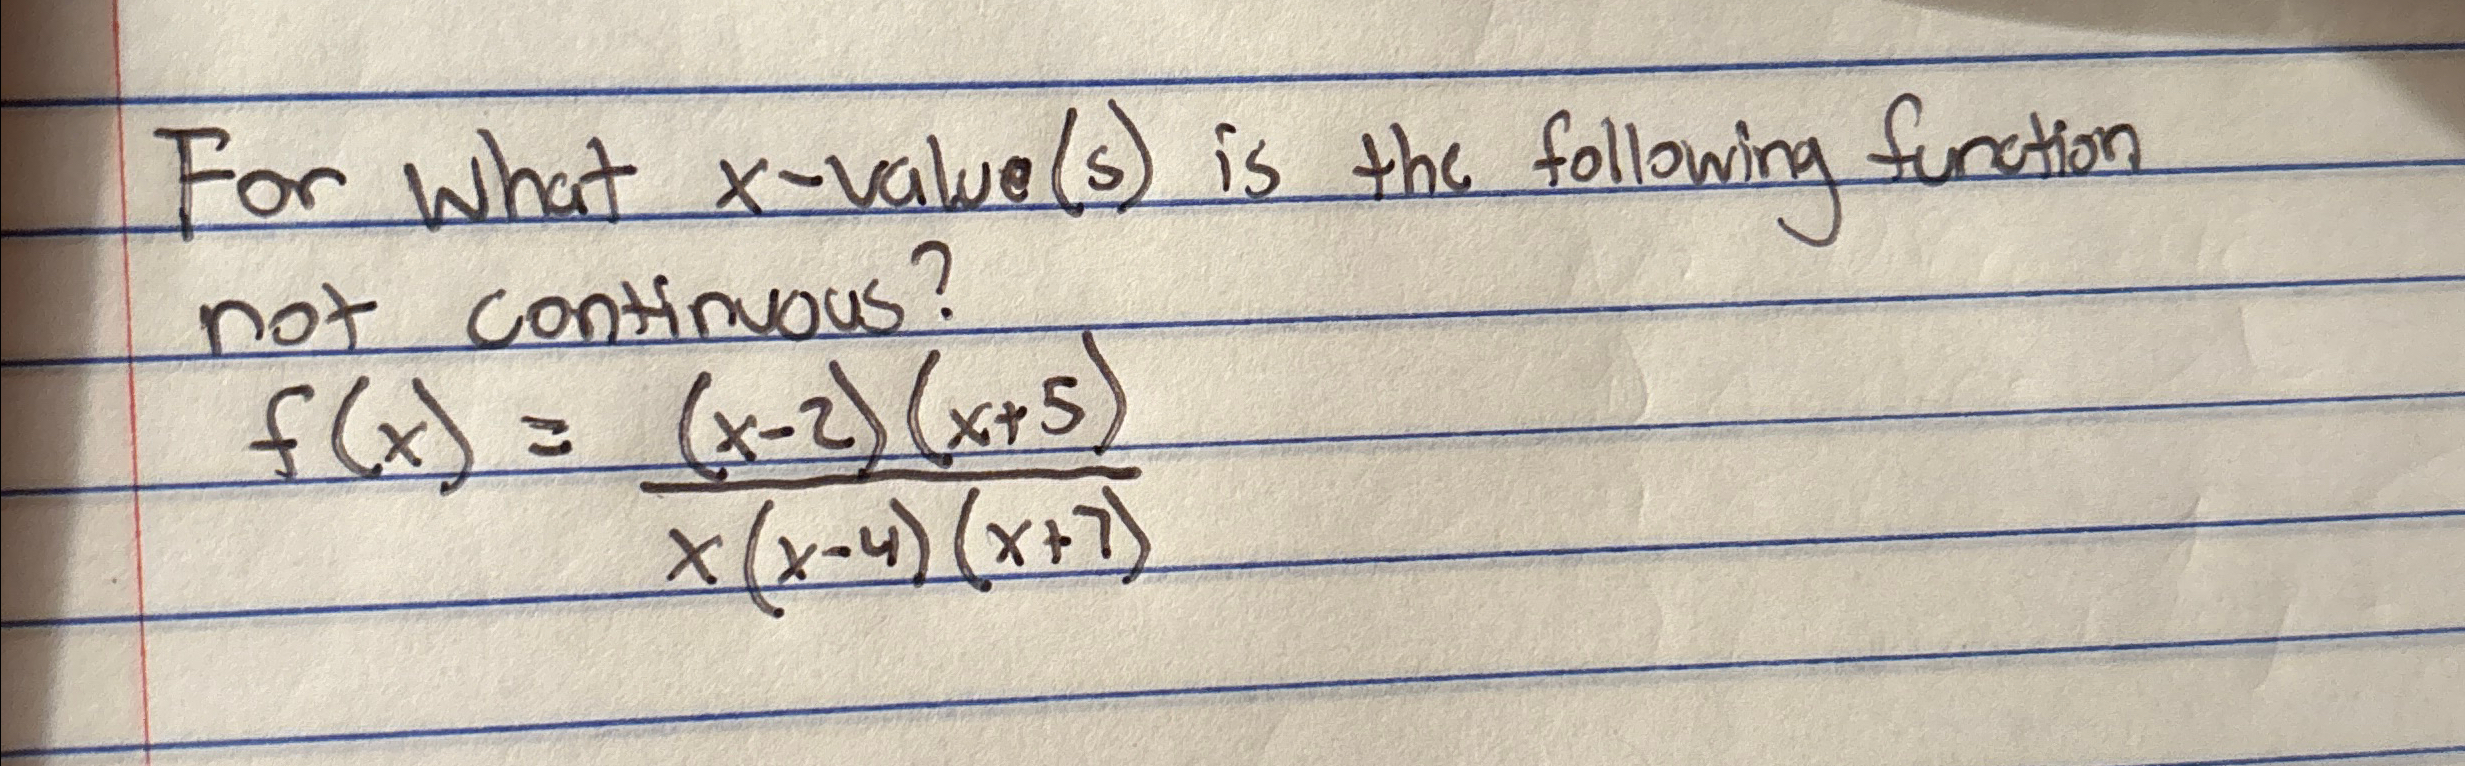 For what x-value(s) is the following function
not continuous?
f(x) = (x-2)(x+5)
x(x-4)(x+7)